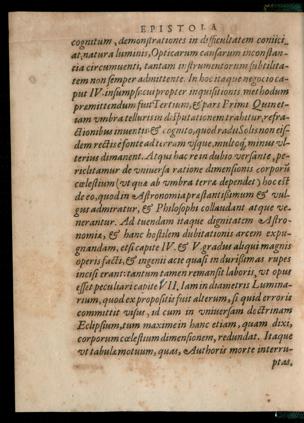 EPISTOLA
cognitum, demonstrationes in difficultatem coniici,
at, natura luminis, Opticarum causarum inconstan-
tia circumuenti, tantam instrumentorum subtilita-
tem non semper admittente. In hoc itaque negocio ca-
put IV. insumpsi: cui propter inquisitionis methodum
premittendum fuit Tertium, & pars Primi. Quin et-
iam vmbra telluris in disputationem trahitur, refra-
ctionibus inuentis & cognito, quod radii Solis non eis-
dem rectis e fonte ad terram vsque, multoq, minus vl-
terius dimanent. Atqui hac re in dubio versante, pe-
riclitamur de vniuersa ratione dimensionis corporū
cœlestium (vt quæ ab vmbra terræ dependet) hoc est
de eo, quod in Astronomia præstantissimum & vul-
gus admiratur, & Philosophi collaudant atque ve-
nerantur. Ad tuendam itaque dignitatem Astro-
nomiæ, & hanc hostilem dubitationis arcem expu-
gnandam, etsi capite IV. & V. gradus aliqui magnis
operis facti, & ingenii acie quasi in durissimas rupes
incisi erant: tantum tamen remansit laboris, vt opus
esset peculiari capite VII. Iam in diametris Lumina-
rium, quod ex propositis fuit alterum, si quid erroris
committit visus, id cum in vniuersam doctrinam
Eclipsium, tum maxime in hanc etiam, quam dixi,
corporum cœlestium dimensionem, redundat. Itaque
vt tabulæ motuum, quas, Authoris morte interru-
ptas,